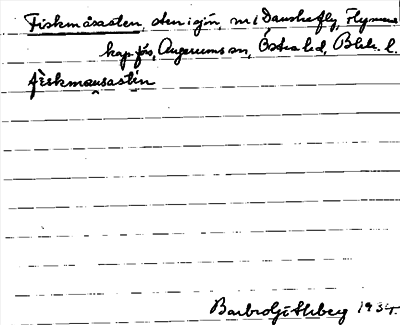 Fiskmåsasten, sten i sjön, m i Danskefly, Flymens
kap.förs, Augerums sn, Östra hd, Blek. l.
fiskmausastin
Barbro 1934.